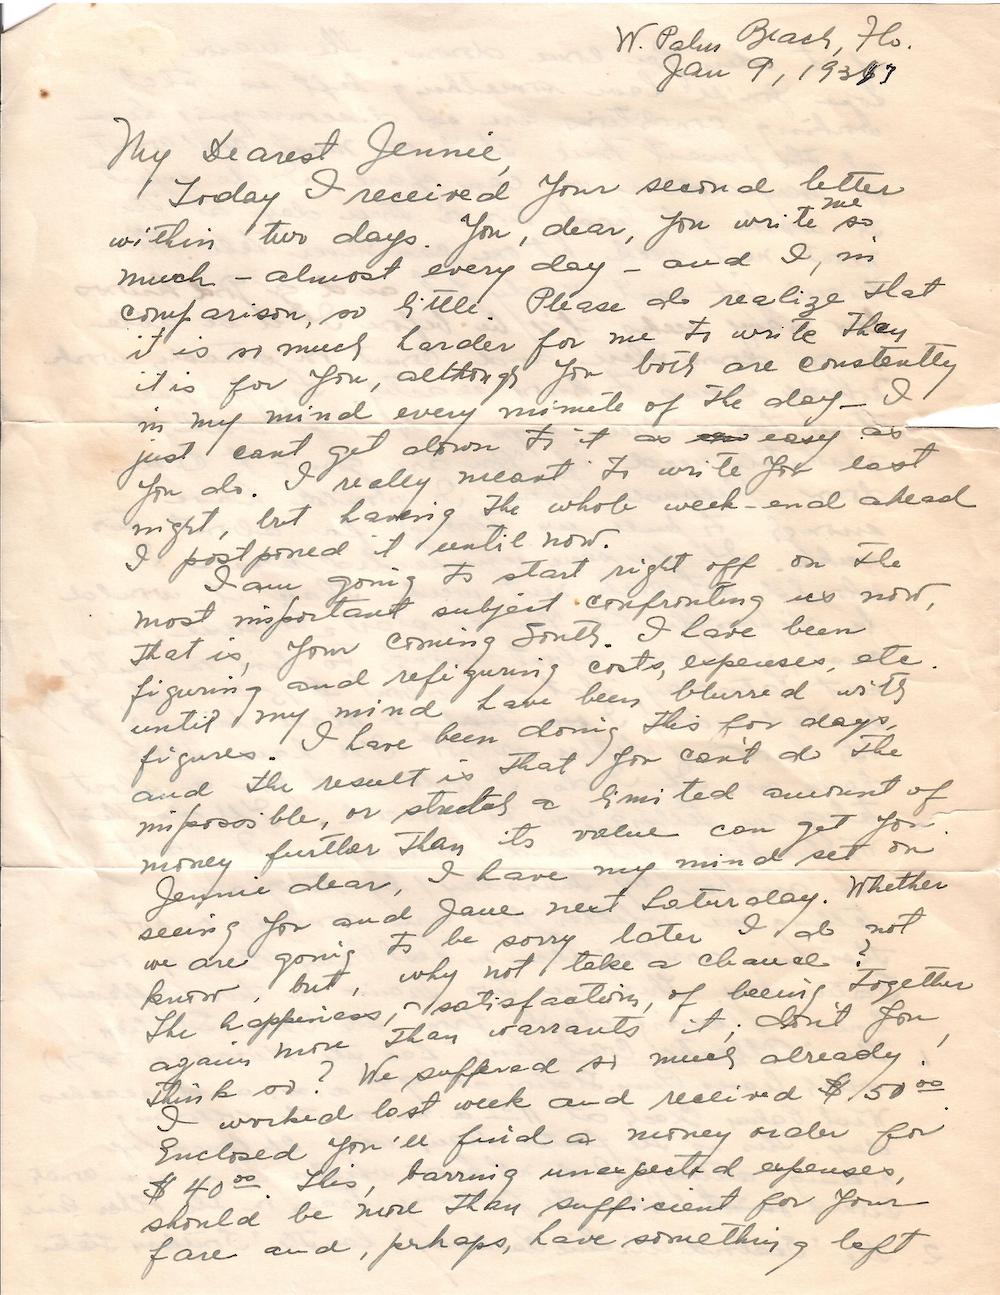 W. Palm Beach, Flo.
Jan 9, 1937
My Dearest Jennie,
Today I received Your second letter
within two days. You, dear, You write me so
much - almost every day - and I, in
comparison, so little. Please do realize that
it is so much harder for me to write than
it is for You, although You both are constently
in my mind every minute of the day - I
just cant get down to it as easy as
You do. I really meant to write You last
night, but having the whole week-end ahead
I postponed it until now.
I am going to start right off on the
most important subject confronting us now,
that is, Your coming South. I have been
figuring and refiguring costs, expenses, etc.
until my mind have been blurred with
figures. I have been doing this for days,
and the result is that You can't do the
impossible, or stretch a limited amount of
money further than its value can get You.
Jennie dear, I have my mind set on
seeing You and Jane next Saturday. Whether
we are going to be sorry later I do not
know, but, why not take a chance?
The happiness, satisfaction, of beeing together
again more than warrants it; don't You
think so? We suffered so much already!
I worked last week and received $50.00
Enclosed You'll find a money order for
$40.00. This, barring unexpected expenses,
should be more than sufficient for Your
fare and, perhaps, have something left